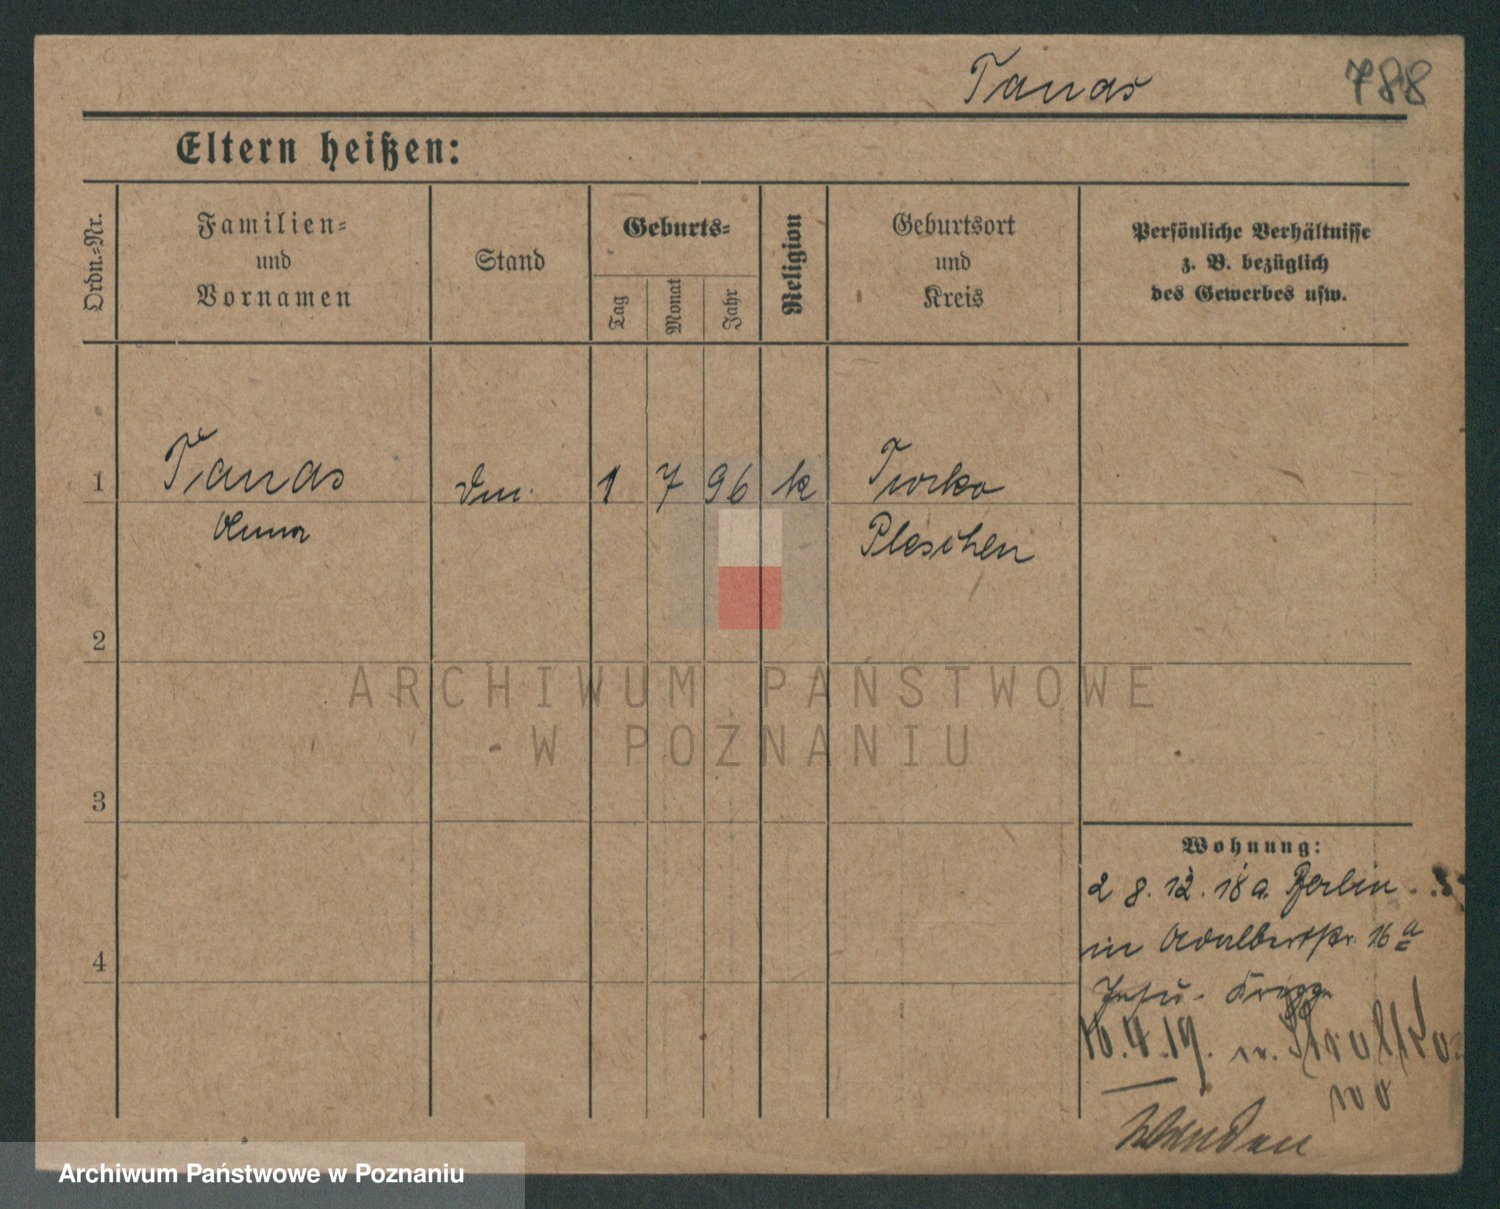 Tanas 788
Eltern heißen:
Ordn.-Nr.
Familien-
und
Vornamen
Stand
Geburts-
Tag
Monat
Jahr
Religion
Geburtsort
und
Kreis
Persönliche Verhältnisse
z. B. bezüglich
des Gewerbes usw.
1 Tanas 1 7 96 k Turko
Anna Pleschen
2
3
4
Wohnung:
8.12.18 a. Berlin
in Adalbertstr. 16 a
16.4.19. n.
ARCHIWUM PAŃSTWOWE
W POZNANIU
Archiwum Państwowe w Poznaniu